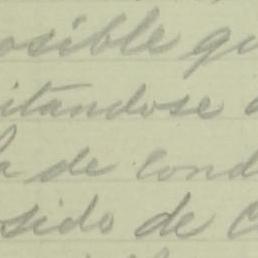 osible qu
itandose a
a de cond
sido de C